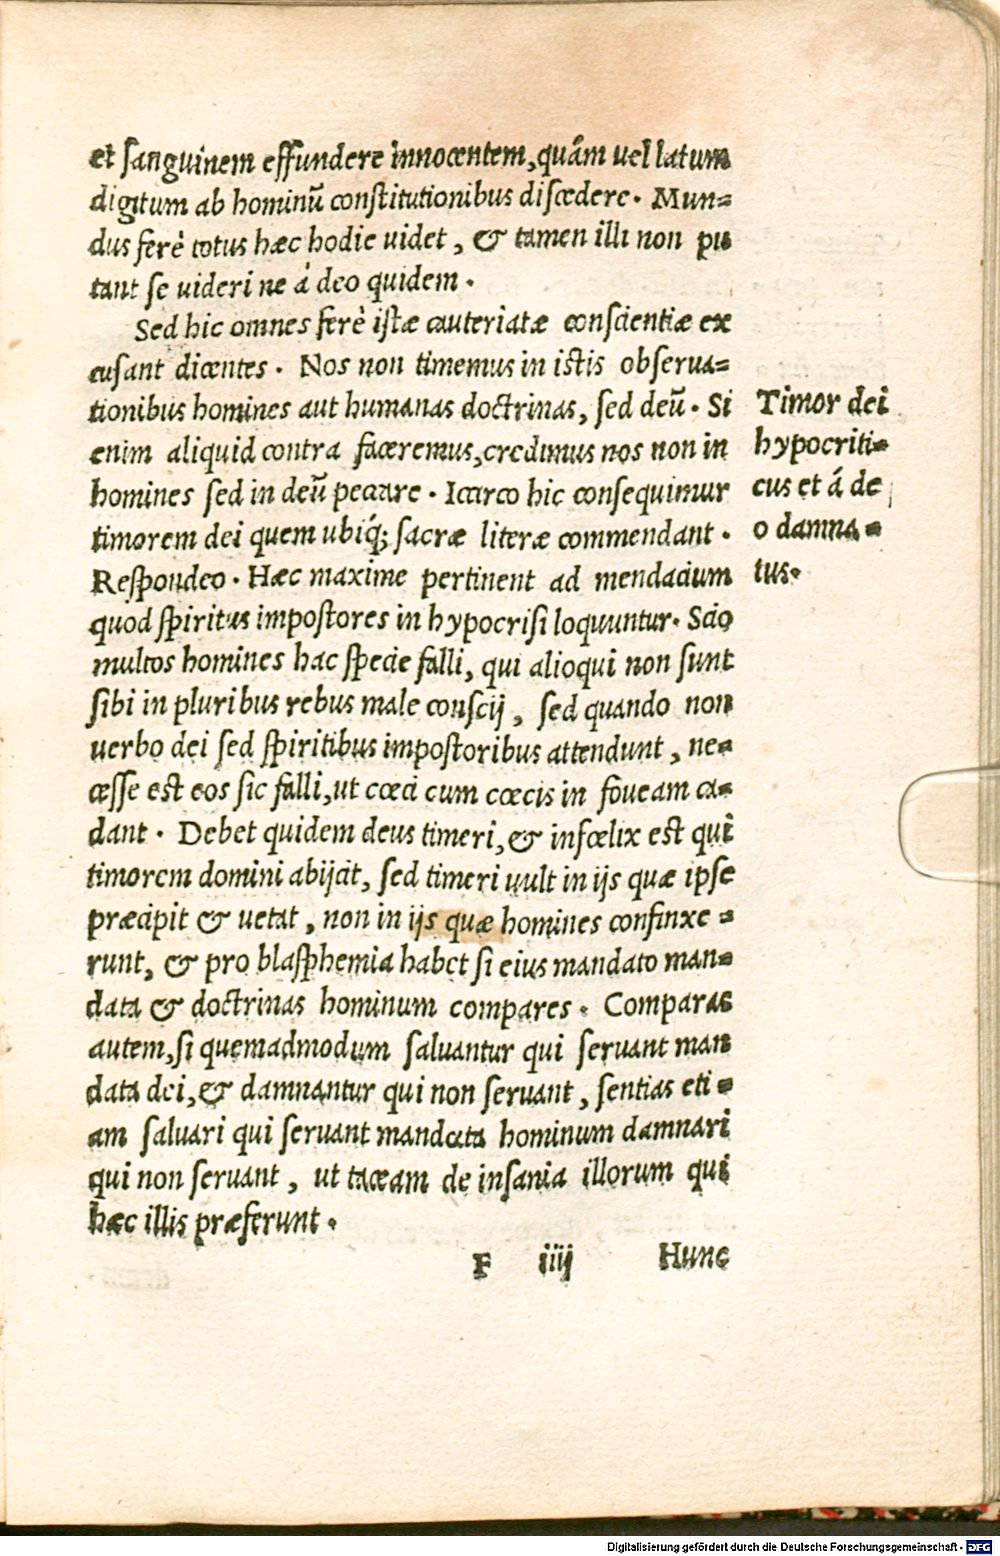 et sanguinem effundere innocentem, quám uel latum
digitum ab hominũ constitutionibus discedere. Mun=
dus ferè totus hæc hodie uidet, & tamen illi non pu
tant se uideri ne á deo quidem.
Sed hic omnes ferè istæ cauteriatæ conscientiæ ex
cusant dicentes. Nos non timemus in istis obserua=
tionibus homines aut humanas doctrinas, sed deũ. Si
enim aliquid contra faceremus, credimus nos non in
homines sed in deũ peccare. Icirco hic consequimur
timorem dei quem ubiq́; sacræ literæ commendant.
Respondeo. Hæc maxime pertinent ad mendacium
quod spiritus impostores in hypocrisi loquuntur. Scio
multos homines hac specie falli, qui alioqui non sunt
sibi in pluribus rebus male conscij, sed quando non
uerbo dei sed spiritibus impostoribus attendunt, ne=
cesse est eos sic falli, ut cœci cum cœcis in foueam ca=
dant. Debet quidem deus timeri, & infœlix est qui
timorem domini abijcit, sed timeri uult in ijs quæ ipse
præcipit & uetat, non in ijs quæ homines confinxe=
runt, & pro blasphemia habet si eius mandato man=
data & doctrinas hominum compares. Comparas
autem, si quemadmodum saluantur qui seruant man
data dei, & damnantur qui non seruant, sentias eti=
am saluari qui seruant mandata hominum damnari
qui non seruant, ut taceam de insania illorum qui
hæc illis præferunt.
F iiij Hunc
Timor dei
hypocriti=
cus et á de
o damna=
tus.
Digitalisierung gefördert durch die Deutsche Forschungsgemeinschaft - DFG